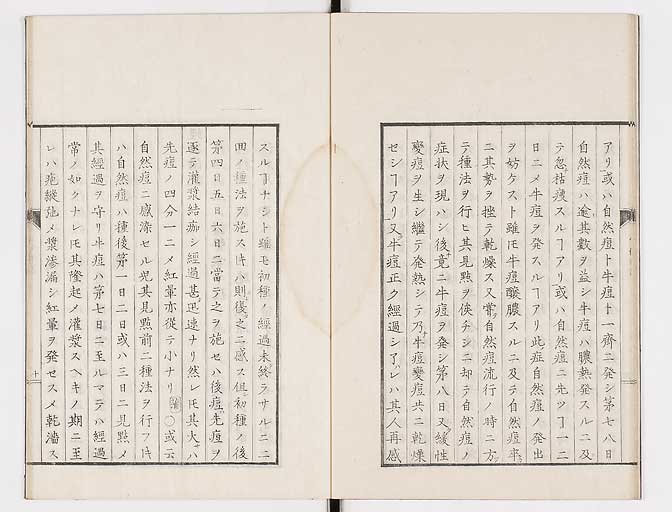 アリ或ハ自然痘ト牛痘ト一齊ニ發シ第七八日
自然痘ハ逾其數ヲ益シ牛痘ハ膿熱發スルニ及
テ忽枯痩スルヿアリ或ハ自然痘ニ先ツヿ一二
日ニメ牛痘ヲ発スルヿアリ此症自然痘ノ発出
ヲ妨ケスト雖𪜈牛痘釀膿スルニ及テ自然痘率
ニ其勢ヲ挫テ乾燥ス又甞自然痘流行ノ時ニ方
テ種法ヲ行ヒ其見點ヲ俟チシニ却テ自然痘ノ
症狀ヲ現ハシ後竟ニ牛痘ヲ発シ第八日又緩性
變痘ヲ生シ繼テ発熱シテ乃牛痘變痘共ニ乾燥
セシヿアリ又牛痘正ク經過シ了レハ其人再感
スルヿナシト雖モ初種ノ經過未終ラサルニ二
回ノ種法ヲ施ス時ハ則後之ニ感ス但初種ノ後
第四日五日六日ニ當テ之ヲ施セハ後痘先痘ヲ
逐テ灌漿結痂シ經過甚迅速ナリ然レ𪜈其大ハ
先痘ノ四分一ニメ紅暈亦從テ小ナリ○或云
自然痘ニ感染セル兒其見點前ニ種法ヲ行フ時
ハ自然痘ハ種後第一日二日或ハ三日ニ見點メ
其經過ヲ守リ牛痘ハ第七日ニ至ルマテハ經過
常ノ如クナレ𪜈其隆起メ灌漿スヘキノ期ニ至
レハ疱縱弛メ漿滲漏シ紅暈ヲ発セスメ乾潘ス
十